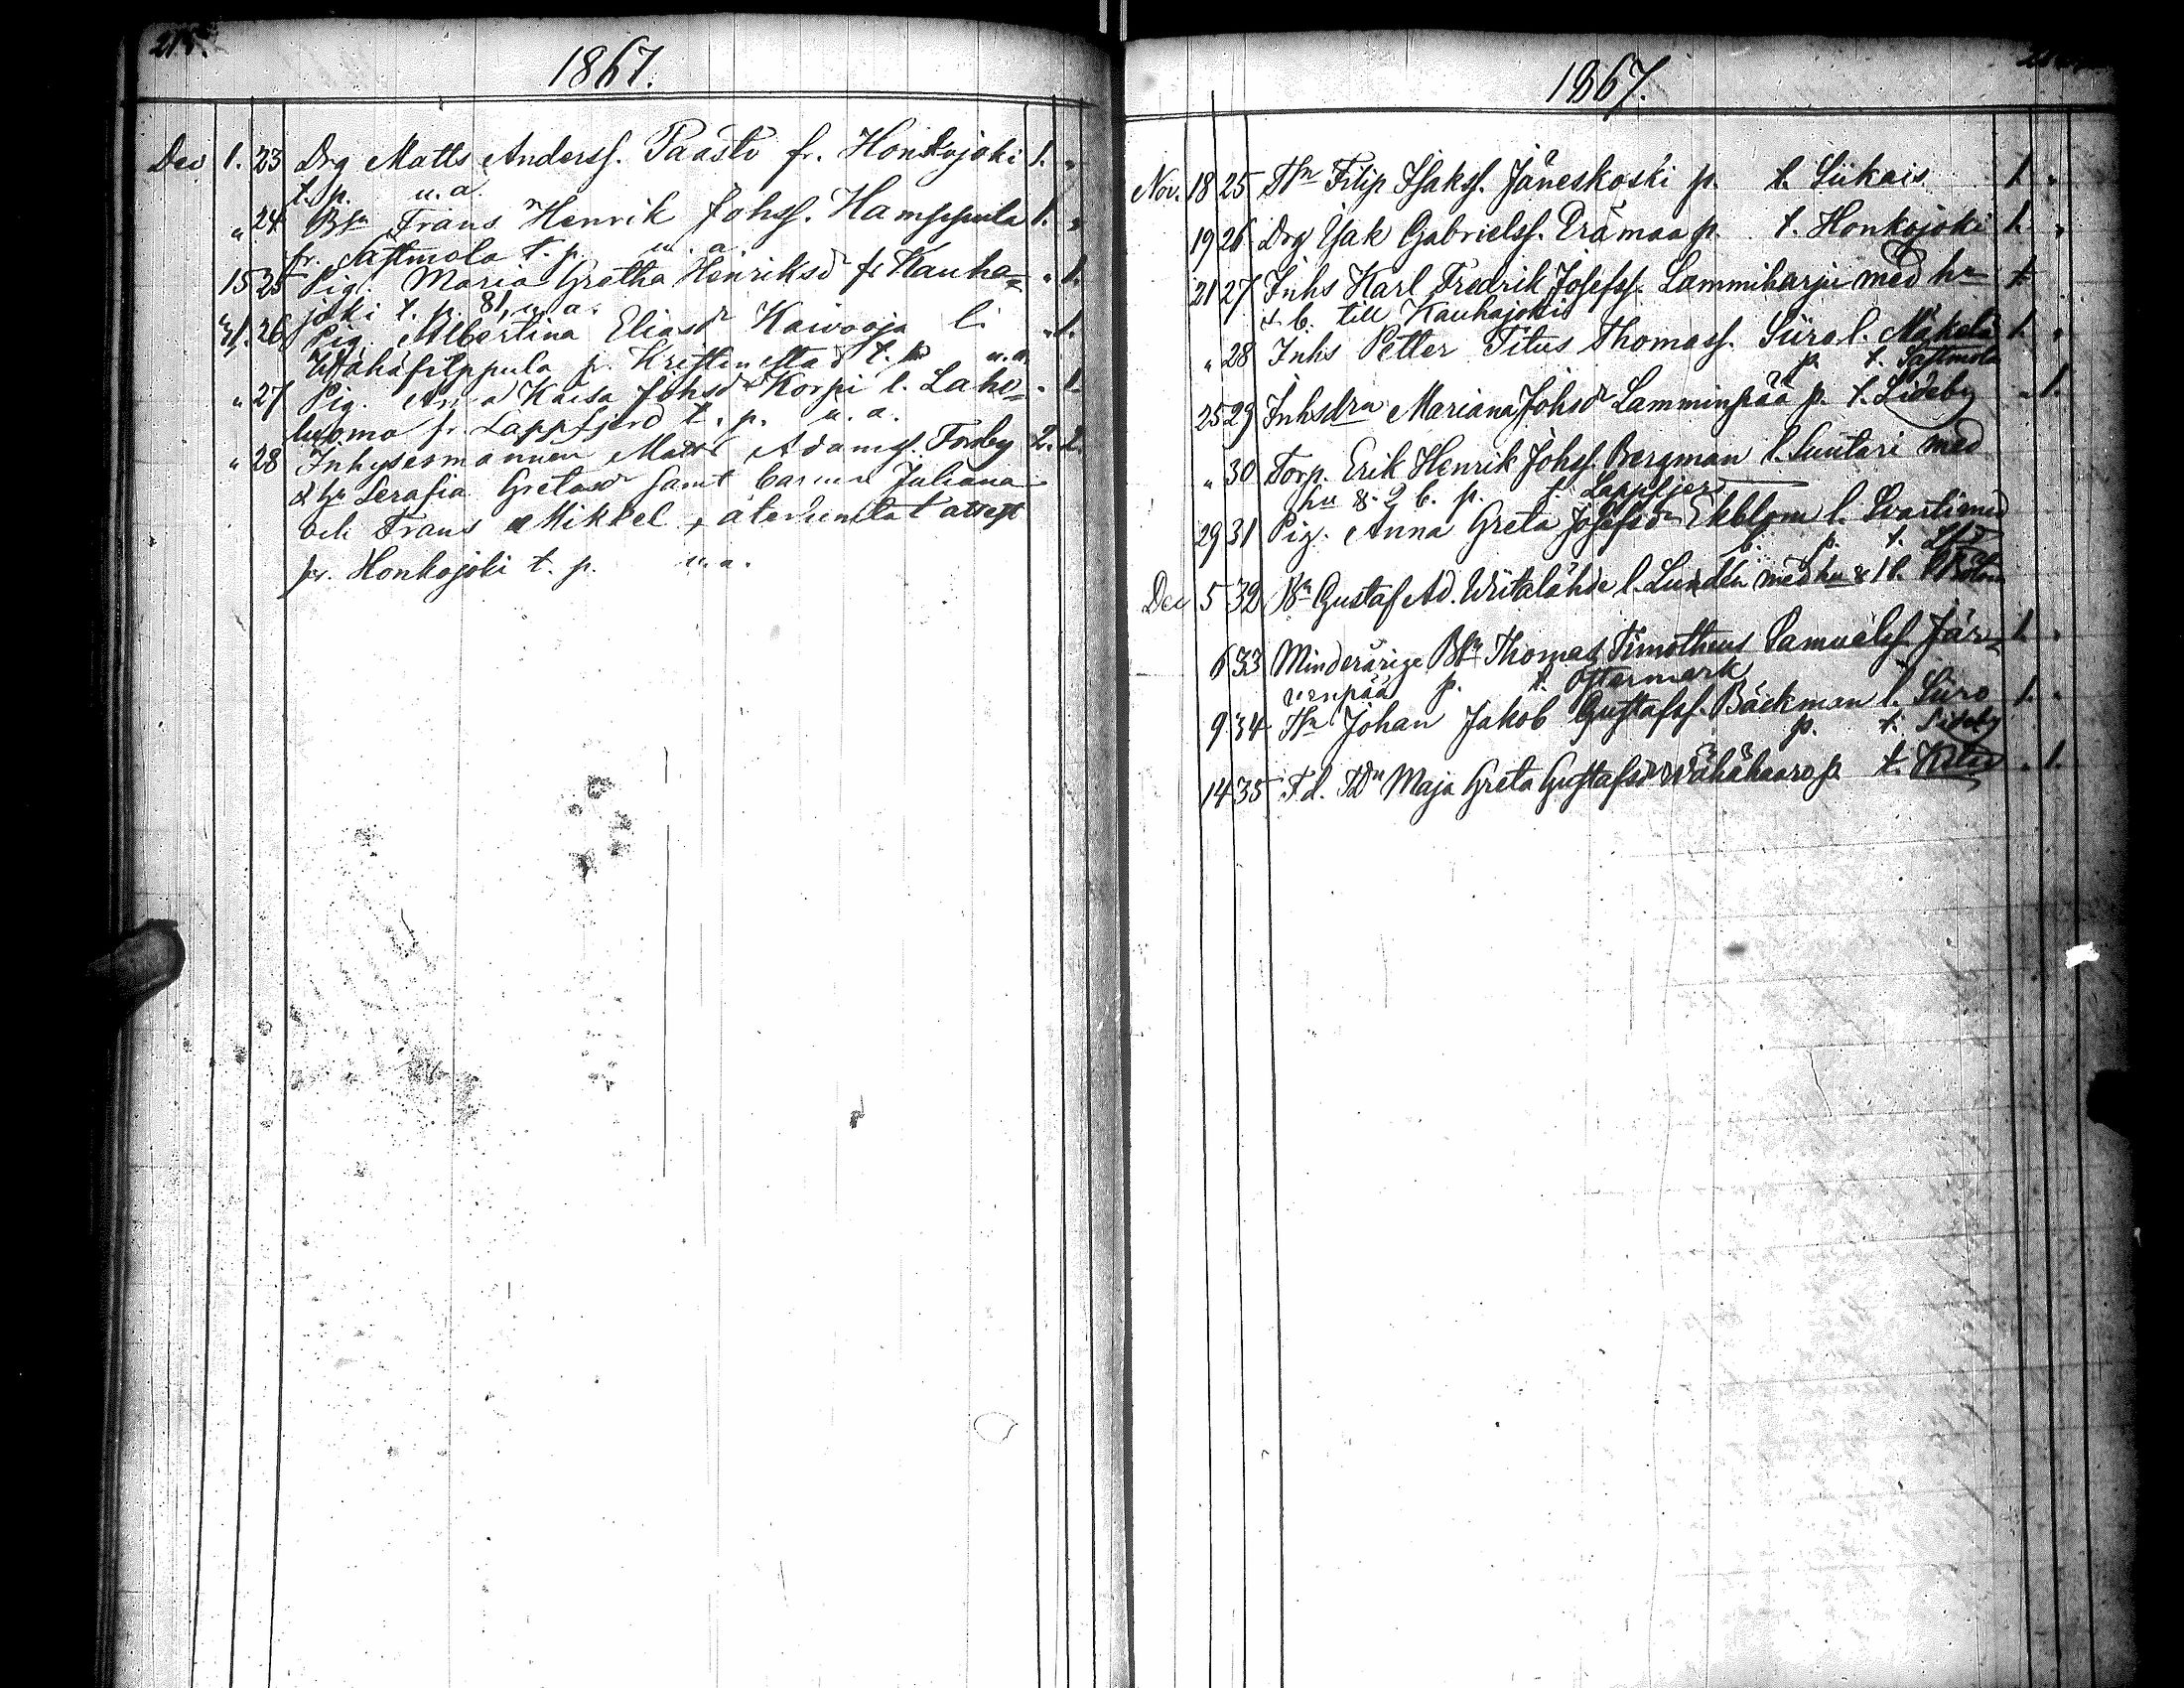 215.
1867.
Dec 1. 23 Drg Matts Anderss. Paasto fr. Honkojoki 1. "
t. p. u. a.
" 24 Bs Frans Henrik Johss. Hamppula 1. "
fr. Sastmola t. p. u. a.
15 25 Pig. Maria Gretha Henriksd fr Kauha= " 1.
joki t. p. 81, u. a.
31. 26 Pig. Albertina Eliasd Kaivooja l. " 1.
Wähäfilppula fr. Kristinestad t. p. u. a.
" 27 Pig. Anna Kaisa Johsd Korpi l. Lahe= " 1.
luoma fr. Lappfjerd t. p. u. a.
" 28 Inhysesmannen Matts Adamss. Forsby 2. 2.
& hu Serafia Gretasd samt barnen Juliana
och Frans Mikkel, återhemtat attest
fr. Honkojoki t. p. u. a.
1867.
Nov. 18 25 Filip Isakss. Jäneskoski p. t. Siikais 1. "
19 26 Drg Isak Gabrielss. Erämaa p. t. Honkojoki 1. "
21 27 Inhs Karl Fredrik Josefss. Lammiharju med hu
& b. till Kauhajoki
" 28 Inhs Petter Titus Thomass. Siiro l. Mäkelä 1. "
p. t. Sastmola
25 29 Inhsdrn Mariana Johsdr Lamminpää p. t. Sideby " 1.
" 30 Torp. Erik Henrik Johss. Bergman l. Suutari med
hu & 2 b. p. t. Lappfjerd
29 31 Pig. Anna Greta Josefsdr Ekblom l. Svartsmed
p. t.
Dec 5 32 Gustaf Ad. Wiitalähde l. Lundén med hu & 1 b.
6 33 Minderårige Thomas Timotheus Samuelss. Jär= 1. "
venpää p. t. Östermark
9 34 Johan Jakob Gustafss. Bäckman l. Siiro 1. "
p. t. Sideby
14 35 F. d. Maja Greta Gustafsdr Wähähaaro p. t. " 1.